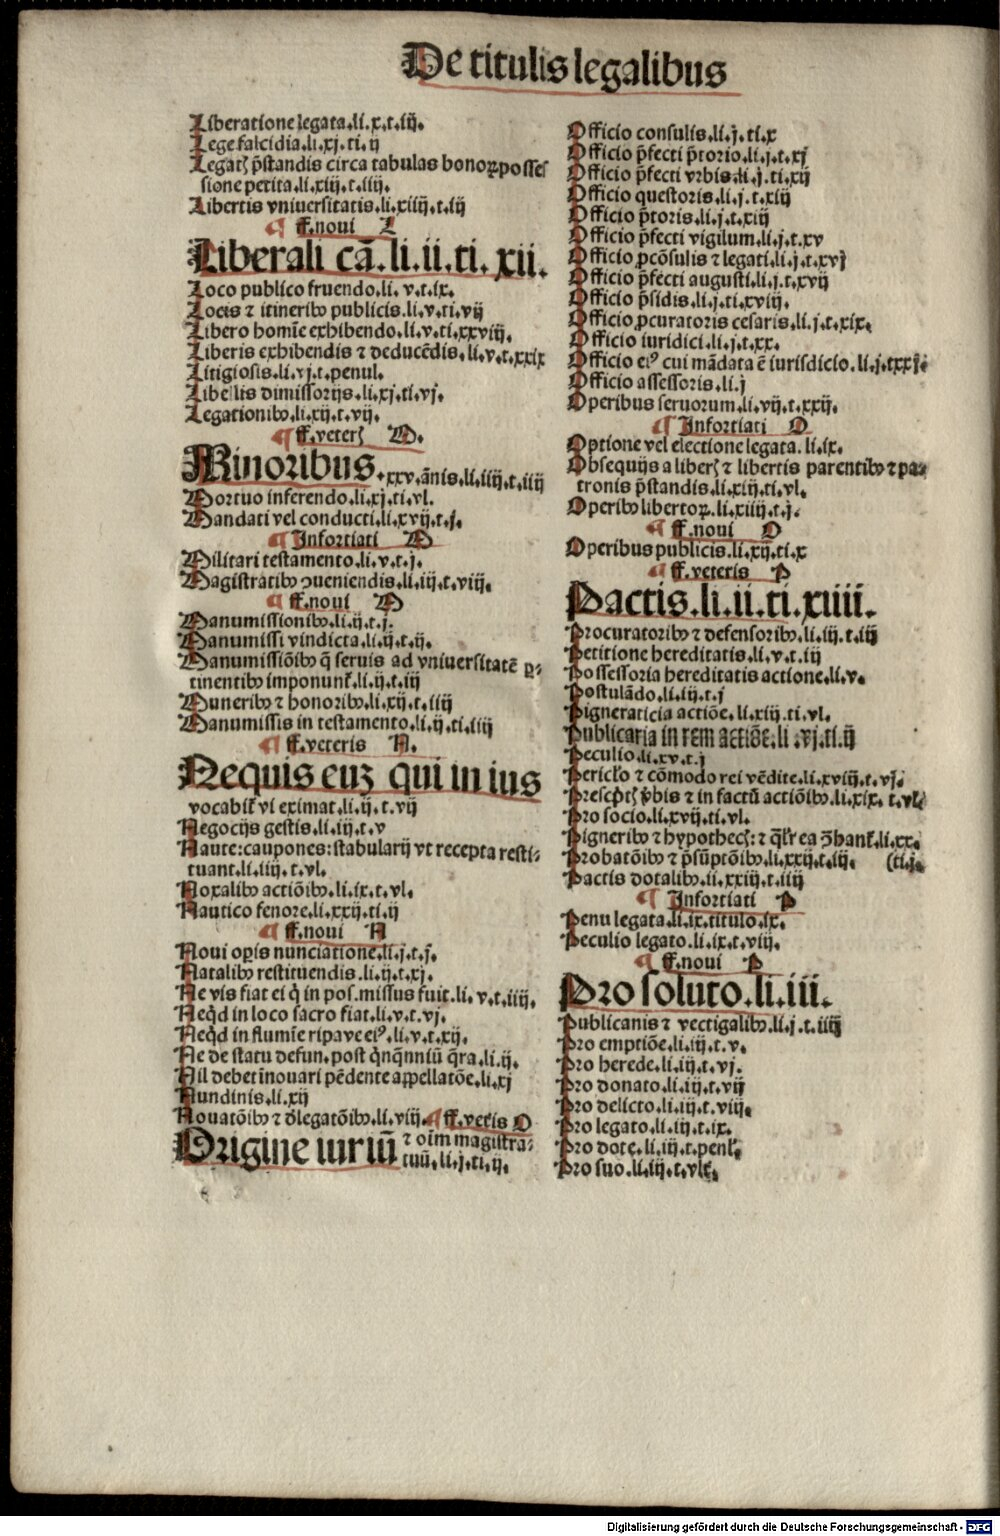 De titulis legalibus
Liberatione legata.li.x.t.iij.
Lege falcidia.li.xj.ti.ij
Legatꝭ p̄standis circa tabulas bonoꝝ posses
sione petita.li.xiij.t.iiij.
Libertis vniuersitatis.li.xiiij.t.iij
¶ ff.noui L
Liberali cā.li.ii.ti.xii.
Loco publico fruendo.li.v.t.ix.
Locis ⁊ itineribꝰ publicis.li.v.ti.vij
Libero homīe exhibendo.li.v.ti.xxviij.
Liberis exhibendis ⁊ deducēdis.li.v.t.xxix
Litigiosis.li.vj.t.penul.
Libellis dimissorijs.li.xj.ti.vj.
Legationibꝰ.li.xij.t.vij.
¶ ff.veterꝭ M.
Minoribus.xxv.ānis.li.iiij.t.iiij
Mortuo inferendo.li.xj.ti.vl.
Mandati vel conducti.li.xvij.t.j.
¶ Infortiati M
Militari testamento.li.v.t.j.
Magistratibꝰ ꝯueniendis.li.iij.t.viij.
¶ ff.noui M
Manumissionibꝰ.li.ij.t.j.
Manumissi vindicta.li.ij.t.ij.
Manumissiōibꝰ q̄ seruis ad vniuersitatē ꝑ-
tinentibꝰ imponunt̃.li.ij.t.iij
Muneribꝰ ⁊ honoribꝰ.li.xij.t.iiij
Manumissis in testamento.li.ij.ti.iiij
¶ ff.veteris N.
Nequis euꝫ qui in ius
vocabit̃ vi eximat.li.ij.t.vij
Negocijs gestis.li.iij.t.v
Naute:caupones:stabularij vt recepta resti-
tuant.li.iiij.t.vl.
Noxalibꝰ actiōibꝰ.li.ix.t.vl.
Nautico fenore.li.xxij.ti.ij
¶ ff.noui N
Noui oꝑis nunciatione.li.j.t.j.
Natalibꝰ restituendis.li.ij.t.xj.
Ne vis fiat ei q̇ in pos.missus fuit.li.v.t.iiij.
Neqd̄ in loco sacro fiat.li.v.t.vj.
Neqd̄ in flumīe ripave eiꝰ.li.v.t.xij.
Ne de statu defun.post q̇nq̄nniū q̄ra.li.ij.
Nil debet īnouari pēdente appellatōe.li.xj
Nundinis.li.xij
Nouatōibꝰ ⁊ dłegatōibꝰ.li.viij.¶ ff.vetĩs O
Origine iuriū ⁊ oīm magistra-
tuū.li.j.ti.ij.
Officio consulis.li.j.ti.x
Officio p̄fecti p̄torio.li.j.t.xj
Officio p̄fecti vrbis.li.j.ti.xij
Officio questoris.li.j.t.xiij
Officio p̄toris.li.j.t.xiij
Officio p̄fecti vigilum.li.j.t.xv
Officio ꝓcōsulis ⁊ legati.li.j.t.xvj
Officio p̄fecti augusti.li.j.t.xvij
Officio p̄sidis.li.j.ti.xviij.
Officio ꝓcuratoris cesaris.li.j.t.xix.
Officio iuridici.li.j.t.xx.
Officio eiꝰ cui mādata ē iurisdicio.li.j.txxj.
Officio assessoris.li.j
Operibus seruorum.li.vij.t.xxij.
¶ Infortiati O
Optione vel electione legata.li.ix.
Obsequijs a liberꝭ ⁊ libertis parentibꝰ ⁊ pa-
tronis p̄standis.li.xij.ti.vl.
Operibꝰ libertoꝝ.li.xiiij.t.j.
¶ ff.noui O
Operibus publicis.li.xij.ti.x
¶ ff.veteris P
Pactis.li.ii.ti.xiiii.
Procuratoribꝰ ⁊ defensoribꝰ.li.iij.t.iij
Petitione hereditatis.li.v.t.iij
Possessoria hereditatis actione.li.v.
Postulādo.li.iij.t.j
Pigneraticia actiōe.li.xiij.ti.vl.
Publicaria in rem actiōe.li.vj.ti.ij
Peculio.li.xv.t.j
Pericĺo ⁊ cōmodo rei vēdite.li.xviij.t.vj.
Prescp̄tꝭ v̄bis ⁊ in factū actiōibꝰ.li.xix.t.vl.
Pro socio.li.xvij.ti.vl.
Pigneribꝰ ⁊ hypothecꝭ:⁊ q̄lr̄ ea ꝯ̄hant̃.li.xx.
Probatōibꝰ ⁊ p̄sūptōibꝰ.li.xxij.t.iij. (ti.j.
Pactis dotalibꝰ.li.xxiij.t.iiij
¶ Infortiati P
Penu legata.li.ix.titulo.ix.
Peculio legato.li.ix.t.viij.
¶ ff.noui P
Pro soluto.li.iii.
Publicanis ⁊ vectigalibꝰ.li.j.t.iiij
Pro emptiōe.li.iij.t.v.
Pro herede.li.iij.t.vj.
Pro donato.li.iij.t.vij
Pro delicto.li.iij.t.viij.
Pro legato.li.iij.t.ix.
Pro dote.li.iij.t.penl̃.
Pro suo.li.iij.t.vlt̃.
Digitalisierung gefördert durch die Deutsche Forschungsgemeinschaft - DFG